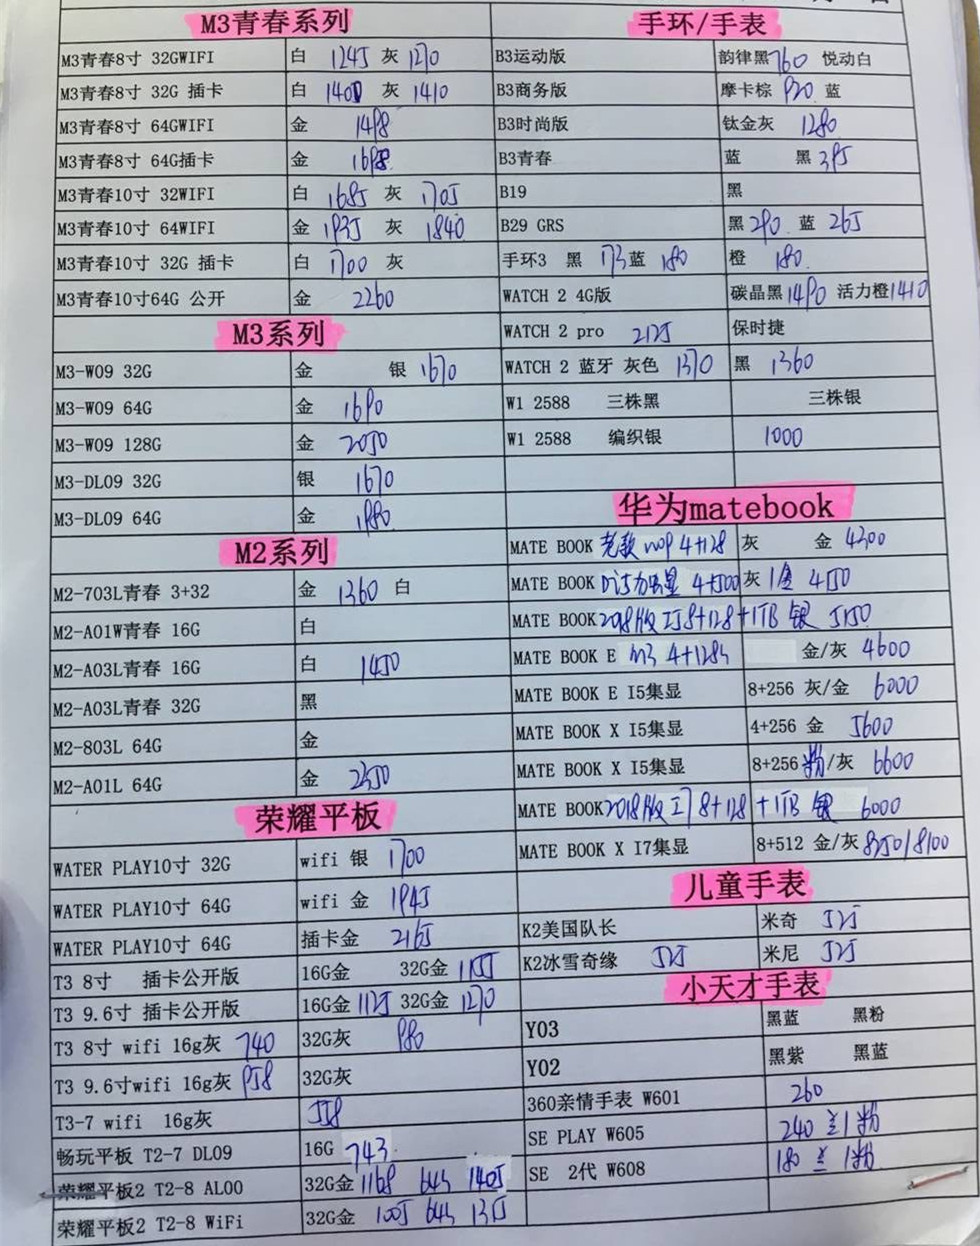 M3青春系列
M3青春8寸 32GWIFI 白 1245 灰 1270
M3青春8寸 32G 插卡 白 1400 灰 1410
M3青春8寸 64GWIFI 金 1498
M3青春8寸 64G插卡 金 1698
M3青春10寸 32WIFI 白 1685 灰 1705
M3青春10寸 64WIFI 金 1935 灰 1840
M3青春10寸 32G 插卡 白 1700 灰
M3青春10寸64G 公开 金 2260
M3系列
M3-W09 32G 金 银 1670
M3-W09 64G 金 1690
M3-W09 128G 金 2050
M3-DL09 32G 银 1670
M3-DL09 64G 金 1980
M2系列
M2-703L青春 3+32 金 1360 白
M2-A01W青春 16G 白
M2-A03L青春 16G 白 1450
M2-A03L青春 32G 黑
M2-803L 64G 金
M2-A01L 64G 金 2350
荣耀平板
WATER PLAY10寸 32G wifi 银 1700
WATER PLAY10寸 64G wifi 金 1945
WATER PLAY10寸 64G 插卡金 2165
T3 8寸 插卡公开版 16G金 32G金 1155
T3 9.6寸 插卡公开版 16G金 1125 32G金 1270
T3 8寸 wifi 16g灰 740 32G灰 880
T3 9.6寸wifi 16g灰 958 32G灰
T3-7 wifi 16g灰 558
畅玩平板 T2-7 DL09 16G 743
荣耀平板2 T2-8 AL00 32G金 1168 64G 1405
荣耀平板2 T2-8 WiFi 32G金 1005 64G 1315
手环/手表
B3运动版 韵律黑760 悦动白
B3商务版 摩卡棕 920 蓝
B3时尚版 钛金灰 1280
B3青春 蓝 黑 395
B19 黑
B29 GRS 黑 290 蓝 265
手环3 黑 173 蓝 180 橙 180
WATCH 2 4G版 碳晶黑1490 活力橙1410
WATCH 2 pro 2125 保时捷
WATCH 2 蓝牙 灰色 1370 黑 1360
W1 2588 三株黑 三株银
W1 2588 编织银 1000
华为matebook
MATE BOOK 老款 4+128 灰 金 4300
MATE BOOK 4+500 灰 金 4150
MATE BOOK 2018版 I5 8+128 +1TB 银 5150
MATE BOOK E M3 4+128G 金/灰 4600
MATE BOOK E I5集显 8+256 灰/金 6000
MATE BOOK X I5集显 4+256 金 5600
MATE BOOK X I5集显 8+256 粉/灰 6600
MATE BOOK 2018版 I7 8+128 +1TB 银 6000
MATE BOOK X I7集显 8+512 金/灰 8250/8100
儿童手表
K2美国队长 米奇 525
K2冰雪奇缘 525 米尼 525
小天才手表
Y03 黑蓝 黑粉
Y02 黑紫 黑蓝
360亲情手表 W601 260
SE PLAY W605 240 兰/粉
SE 2代 W608 180 兰/粉